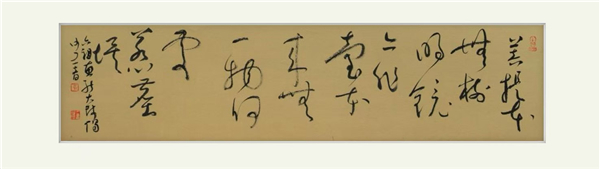 菩提本
無樹
明鏡
亦非
臺本
來無
一物何
處
惹塵
埃
大師偈